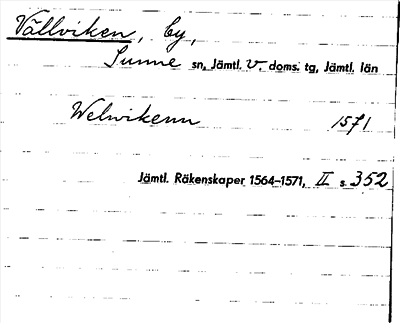 Vällviken, by,
Sunne sn, Jämtl. V. doms. tg, Jämtl. län
Welwikenn 1571
Jämtl. Räkenskaper 1564–1571, II s. 352